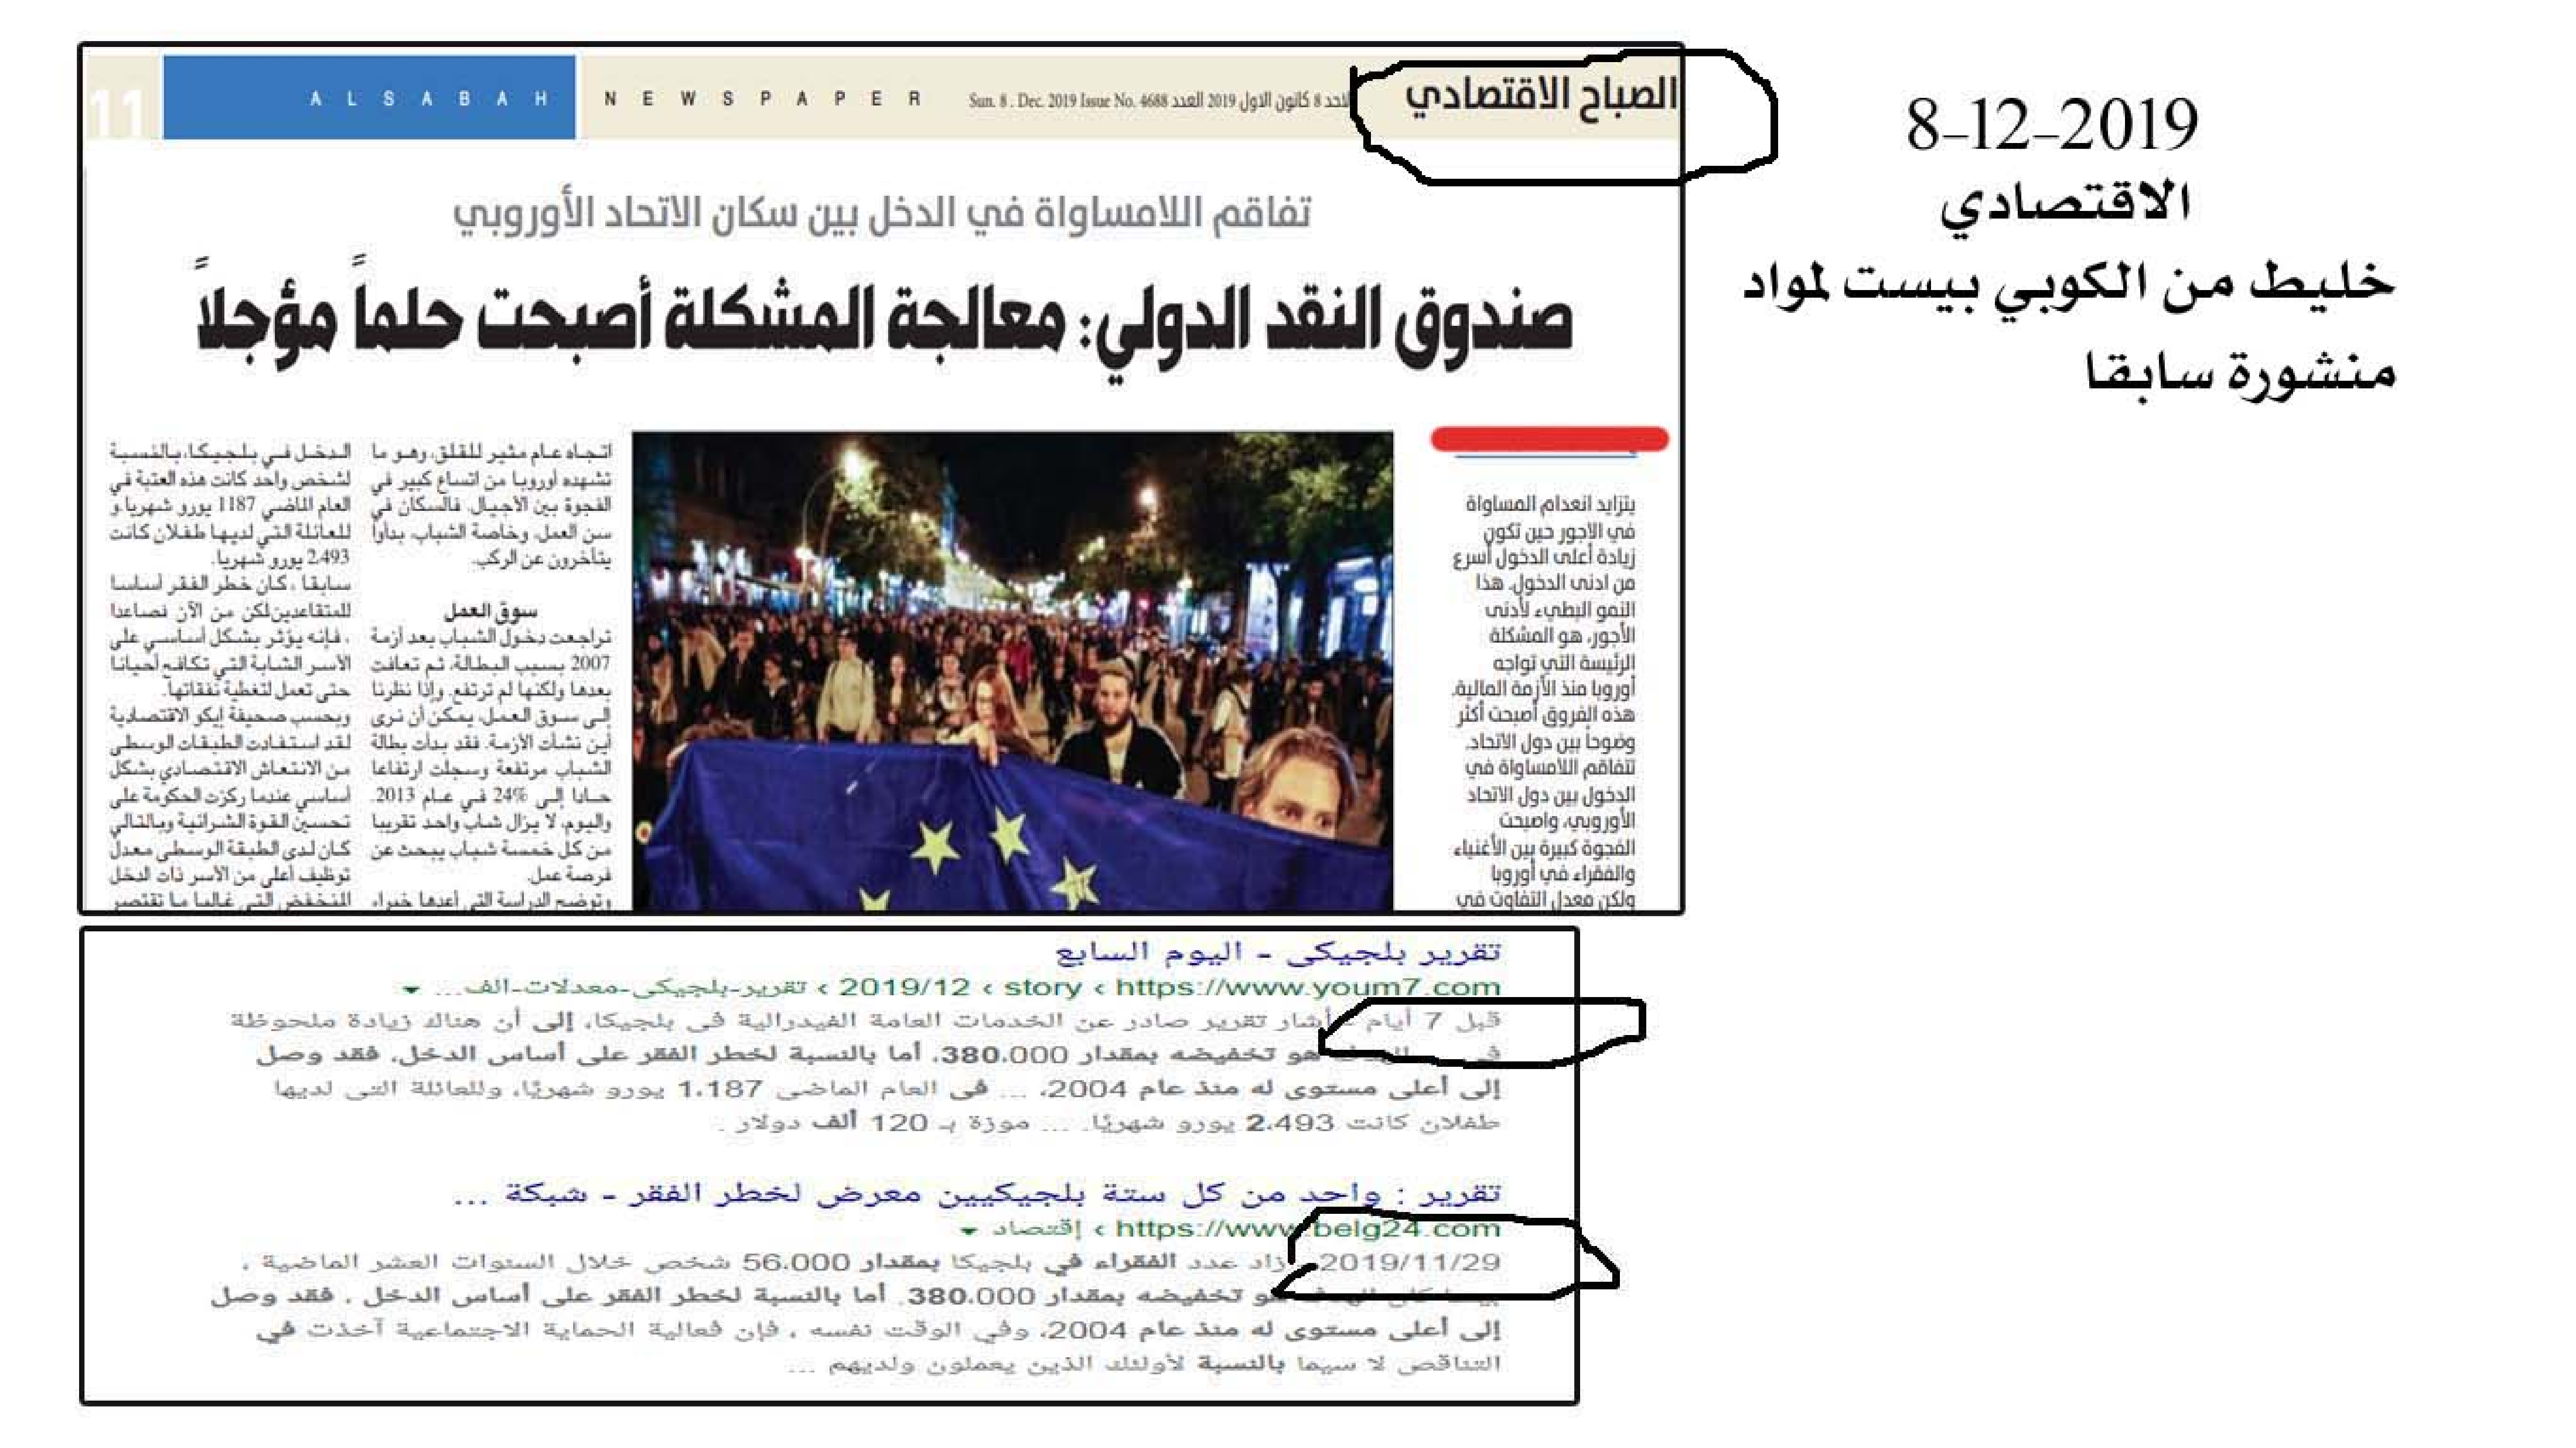 الصباح الاقتصادي
الاحد 8 كانون الاول 2019 العدد 4688 Sun. 8 . Dec. 2019 Issue No.
NEWSPAPER
ALSABAH
11
تفاقم اللامساواة في الدخل بين سكان الاتحاد الأوروبي
صندوق النقد الدولي: معالجة المشكلة أصبحت حلماً مؤجلاً
يتزايد انعدام المساواة
في الاجور حين تكون
زيادة أعلى الدخول أسرع
من ادنى الدخول. هذا
النمو البطيء لأدنى
الأجور، هو المشكلة
الرئيسة التي تواجه
أوروبا منذ الأزمة المالية.
هذه الفروق أصبحت أكثر
وضوحاً بين دول الاتحاد.
تتفاقم اللامساواة في
الدخول بين دول الاتحاد
الأوروبي، واصبحت
الفجوة كبيرة بين الأغنياء
والفقراء في أوروبا
ولكن معدل التفاوت في
اتجاه عام مثير للقلق، وهو ما
تشهده أوروبا من اتساع كبير في
الفجوة بين الأجيال. فالسكان في
سن العمل، وخاصة الشباب، بدأوا
يتأخرون عن الركب.
سوق العمل
تراجعت دخول الشباب بعد أزمة
2007 بسبب البطالة، ثم تعافت
بعدها ولكنها لم ترتفع. وإذا نظرنا
إلى سوق العمل، يمكن أن نرى
أين نشأت الأزمة. فقد بدأت بطالة
الشباب مرتفعة وسجلت ارتفاعا
حادا إلى 24% في عام 2013.
واليوم، لا يزال شاب واحد تقريبا
من كل خمسة شباب يبحث عن
فرصة عمل.
وتوضح الدراسة التي أعدها خبراء
الدخل في بلجيكا، بالنسبة
لشخص واحد كانت هذه العتبة في
العام الماضي 1187 يورو شهريا، و
للعائلة التي لديها طفلان كانت
2.493 يورو شهريا.
سابقا ، كان خطر الفقر أساسا
للمتقاعدين لكن من الآن فصاعدا
، فإنه يؤثر بشكل أساسي على
الأسر الشابة التي تكافح أحيانا
حتى تعمل لتغطية نفقاتها.
وبحسب صحيفة إيكو الاقتصادية
لقد استفادت الطبقات الوسطى
من الانتعاش الاقتصادي بشكل
أساسي عندما ركزت الحكومة على
تحسين القوة الشرائية وبالتالي
كان لدى الطبقة الوسطى معدل
توظيف أعلى من الأسر ذات الدخل
المنخفض التي غالبا ما تقتصر
8-12-2019
الاقتصادي
خليط من الكوبي بيست لمواد
منشورة سابقا
تقرير بلجيكى - اليوم السابع
https://www.youm7.com › story › 2019/12 › تقرير-بلجيكى-معدلات-الف...
قبل 7 أيام - أشار تقرير صادر عن الخدمات العامة الفيدرالية فى بلجيكا، إلى أن هناك زيادة ملحوظة
هو تخفيضه بمقدار 380.000، أما بالنسبة لخطر الفقر على أساس الدخل، فقد وصل
إلى أعلى مستوى له منذ عام 2004، ... فى العام الماضى 1.187 يورو شهريًا، وللعائلة التى لديها
طفلان كانت 2.493 يورو شهريًا. ... موزة بـ 120 ألف دولار .
تقرير : واحد من كل ستة بلجيكيين معرض لخطر الفقر - شبكة ...
https://www.belg24.com › إقتصاد
2019/11/29 زاد عدد الفقراء في بلجيكا بمقدار 56.000 شخص خلال السنوات العشر الماضية ،
بينما كان الهدف هو تخفيضه بمقدار 380.000. أما بالنسبة لخطر الفقر على أساس الدخل ، فقد وصل
إلى أعلى مستوى له منذ عام 2004، وفي الوقت نفسه ، فإن فعالية الحماية الاجتماعية آخذت في
التناقص لا سيما بالنسبة لأولئك الذين يعملون ولديهم ...